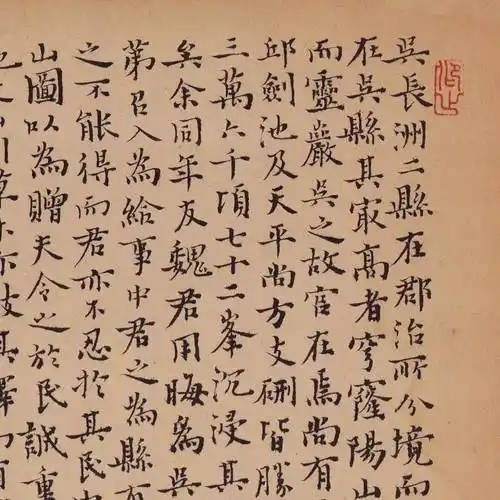 吳長洲二縣在郡治所分境而
在吳縣其冣高者穹窿陽山
而靈巖吳之故宮在焉尚有
邱劍池及天平尚方支硎皆勝
三萬六千頃七十二峯沉浸其
矣余同年友魏君用晦為吳
第召入為給事中君之為縣有
之不能得而君亦不忍於其民
山圖以為贈夫令之於民誠重
山川草木亦被其澤而有